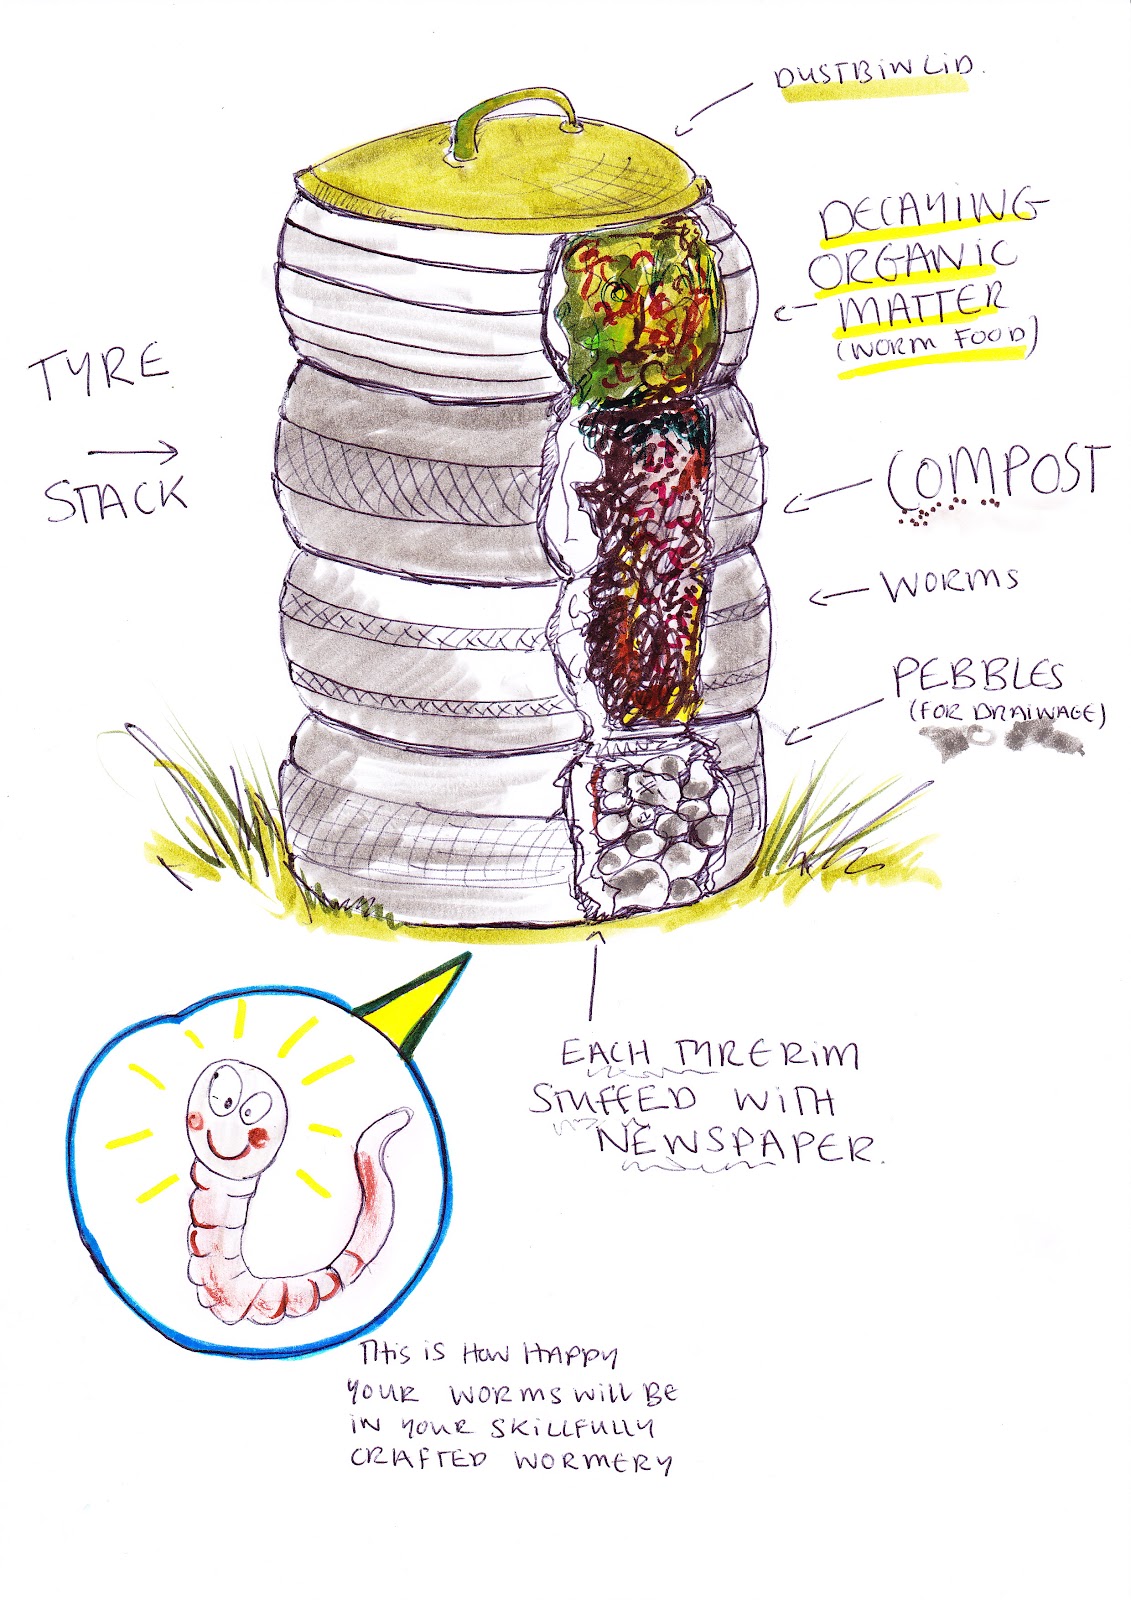 DUSTBIN LID.
DECAYING
ORGANIC
MATTER
(WORM FOOD)
TYRE
STACK
COMPOST
WORMS
PEBBLES
(FOR DRAINAGE)
EACH TYRE RIM
STUFFED WITH
NEWSPAPER.
THIS IS HOW HAPPY
YOUR WORMS WILL BE
IN YOUR SKILLFULLY
CRAFTED WORMERY